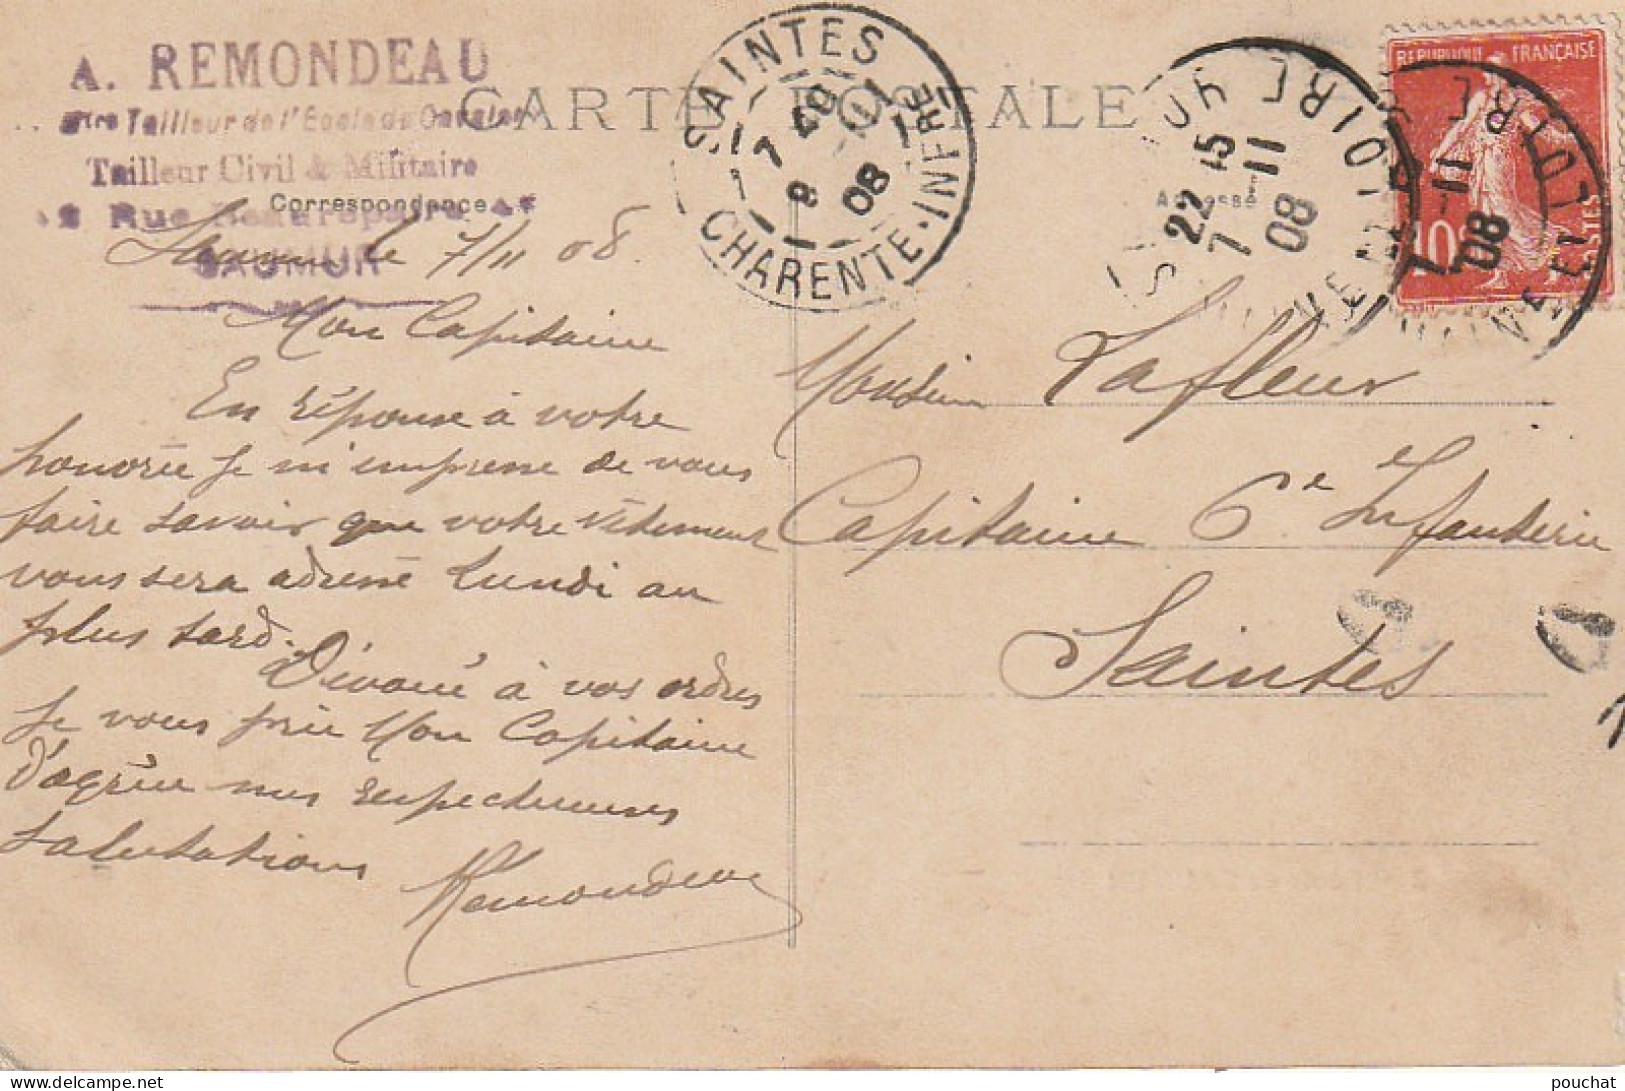 A. REMONDEAU
Mtre Tailleur de l'Ecole de Cavalerie
Tailleur Civil & Militaire
Rue Beaurepaire
SAUMUR
CARTE POSTALE
Correspondance
Adresse
SAINTES
7 40
8 11
08
CHARENTE-INFRE
22 15
7 11
08
MAINE ET LOIRE
7 11
08
MAINE ET LOIRE
REPUBLIQUE FRANÇAISE
10c
POSTES
Saumur le 7/11 08.
Mon Capitaine
En réponse à votre
honorée je m'empresse de vous
faire savoir que votre vêtement
vous sera adressé Lundi au
plus tard.
Dévoué à vos ordres
Je vous prie Mon Capitaine
d'agréer mes respectueuses
salutations
Remondeau
Monsieur Lafleur
Capitaine 6e Infanterie
Saintes
pouchat